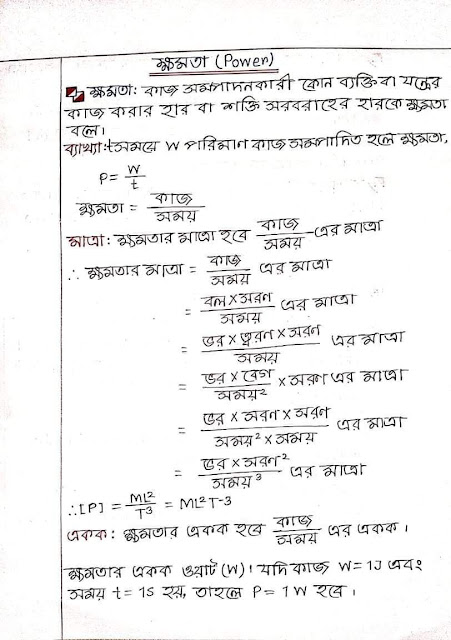 ক্ষমতা (Power)
ক্ষমতা: কাজ সম্পাদনকারী কোন ব্যক্তি বা যন্ত্রের
কাজ করার হার বা শক্তি সরবরাহের হারকে ক্ষমতা
বলে।
ব্যাখ্যা: t সময়ে W পরিমান কাজ সম্পাদিত হলে ক্ষমতা,
P = W/t
ক্ষমতা = কাজ/সময়
মাত্রা: ক্ষমতার মাত্রা হবে কাজ/সময় এর মাত্রা
∴ ক্ষমতার মাত্রা = কাজ/সময় এর মাত্রা
= বল × সরণ/সময় এর মাত্রা
= ভর × ত্বরণ × সরণ/সময় এর মাত্রা
= ভর × বেগ/সময়² × সরণ এর মাত্রা
= ভর × সরণ × সরণ/সময়² × সময় এর মাত্রা
= ভর × সরণ²/সময়³ এর মাত্রা
∴ [P] = ML²/T³ = ML²T-3
একক: ক্ষমতার একক হবে কাজ/সময় এর একক।
ক্ষমতার একক ওয়াট (W)। যদি কাজ W = 1J এবং
সময় t = 1s হয়, তাহলে P = 1W হবে।